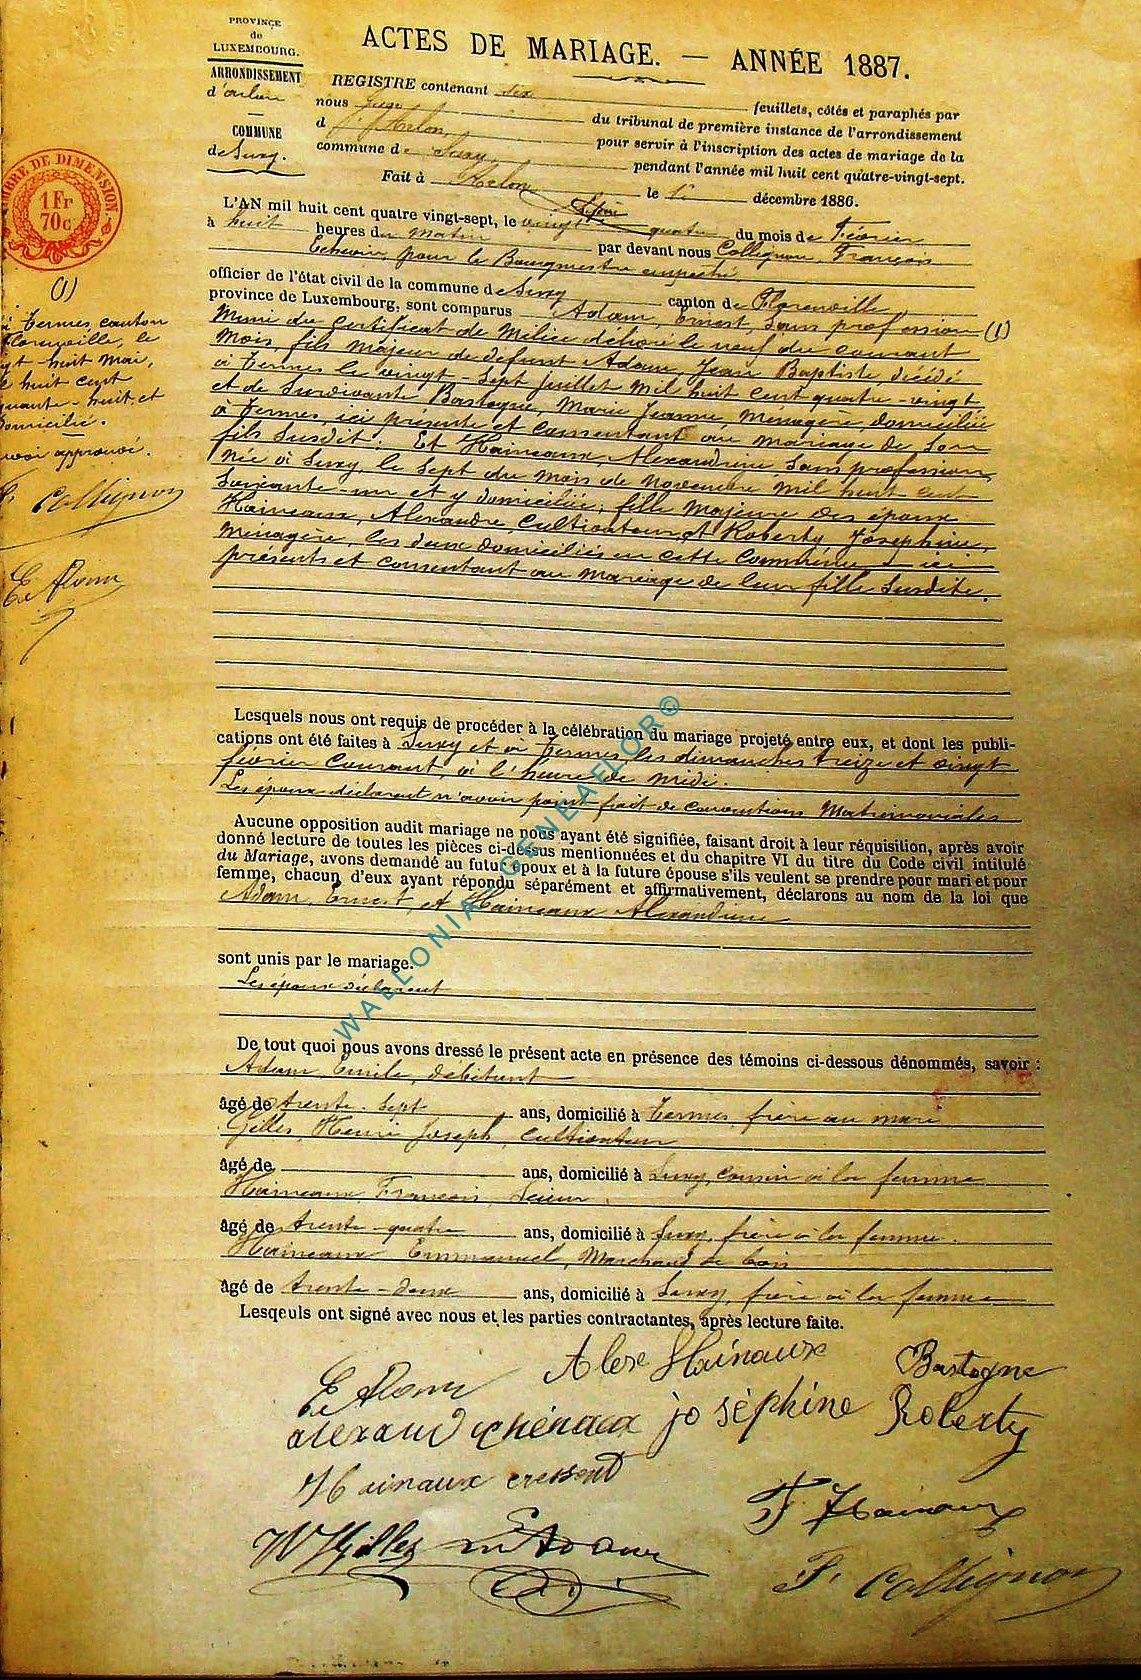 PROVINCE
de
LUXEMBOURG.
ARRONDISSEMENT
d'arlon
COMMUNE
de Suxy.
ACTES DE MARIAGE. — ANNÉE 1887.
REGISTRE contenant six feuillets, côtés et paraphés par
nous Juge du tribunal de première instance de l'arrondissement
d'Arlon, pour servir à l'inscription des actes de mariage de la
commune de Suxy, pendant l'année mil huit cent quatre-vingt-sept.
Fait à Arlon le 1er décembre 1886.
TIMBRE DE DIMENSION.
1 Fr
70 c
L'AN mil huit cent quatre vingt-sept, le vingt quatre du mois de Février
à huit heures du matin par devant nous Collignon, François
Echevin, pour le Bourgmestre empêché
officier de l'état civil de la commune de Suxy canton de Florenville,
province de Luxembourg, sont comparus Adam, Ernest, sans profession (1)
Muni du certificat de Milice délivré le neuf du courant
mois, fils majeur de défunt Adam, Jean Baptiste décédé
à Termes le vingt-sept juillet mil huit cent quatre-vingt
et de survivante Bastogne, Marie Jeanne, Ménagère, domiciliée
à Termes, ici présente et consentant au mariage de son
fils susdit; Et Haineaux, Alexandrine sans profession,
née à Suxy, le sept du mois de novembre mil huit cent
soixante-un et y domiciliée; fille majeure des époux
Haineaux, Alexandre, Cultivateur, et Roberty Joséphine,
Ménagère, les deux domiciliés en cette commune, ici
présents et consentant au mariage de leur fille susdite.
(1)
à Termes, canton
Florenville, le
vingt-huit mai,
huit cent
cinquante-huit, et
domicilié.
renvoi approuvé.
F. Collignon
E. Adam
Lesquels nous ont requis de procéder à la célébration du mariage projeté entre eux, et dont les publi-
cations ont été faites à Suxy et à Termes, les dimanches treize et vingt
février courant, à l'heure de midi.
Les époux déclarent n'avoir point fait de conventions Matrimoniales
Aucune opposition audit mariage ne nous ayant été signifiée, faisant droit à leur réquisition, après avoir
donné lecture de toutes les pièces ci-dessus mentionnées et du chapitre VI du titre du Code civil intitulé
du Mariage, avons demandé au futur époux et à la future épouse s'ils veulent se prendre pour mari et pour
femme, chacun d'eux ayant répondu séparément et affirmativement, déclarons au nom de la loi que
Adam, Ernest, et Haineaux Alexandrine
sont unis par le mariage.
Les époux déclarent
De tout quoi nous avons dressé le présent acte en présence des témoins ci-dessous dénommés, savoir :
Adam Emile, debitant
âgé de trente-sept ans, domicilié à Termes, frère au mari
Gilles, Henri Joseph, cultivateur
âgé de ans, domicilié à Suxy, cousin à la femme
Haineaux François, Scieur,
âgé de trente-quatre ans, domicilié à Suxy, frère à la femme.
Haineaux Emmanuel, Marchand de bois
âgé de trente-deux ans, domicilié à Suxy, frère à la femme
Lesqeuls ont signé avec nous et les parties contractantes, après lecture faite.
E. Adam Alexe Hainaux Bastogne
joséphine Roberty
Hainaux
F. Hainaux
Gilles E Adam
F. Collignon
WALLONIA GENEAELOR©